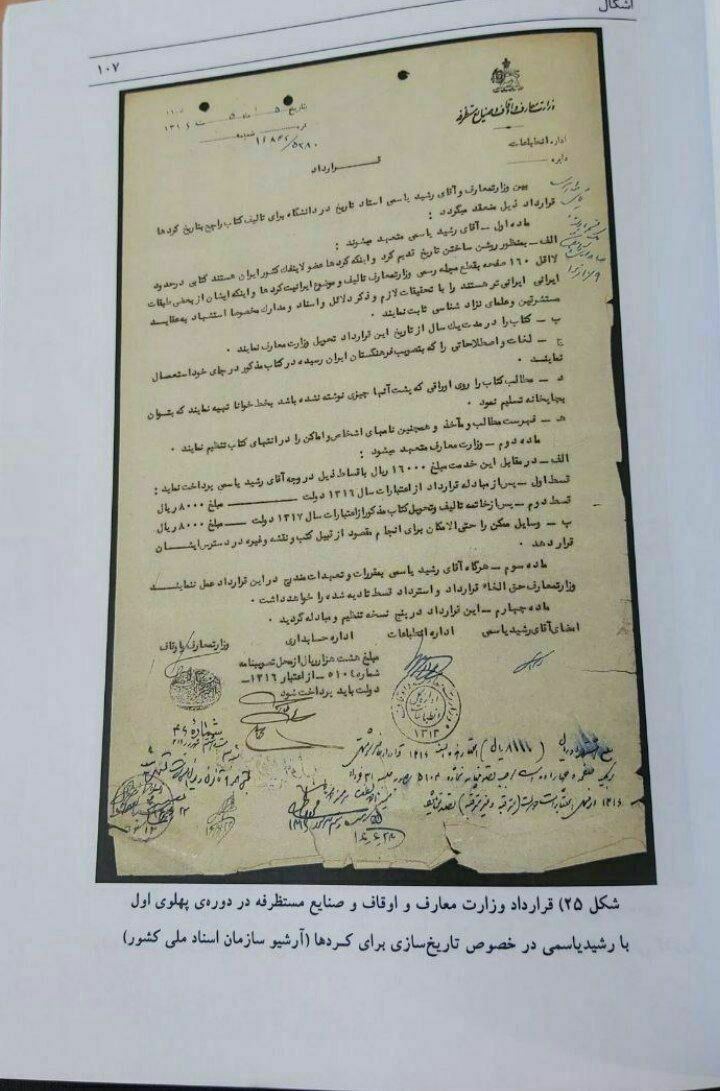 اشکال
۱۰۷
وزارت معارف و اوقاف و صنایع مستظرفه
اداره انطباعات
دایره
تاریخ ۵ ماه ۵ ۱۳۱۶
نمره ۱۱۸۴۲/۵۲۸۰
قرارداد
بین وزارتمعارف و آقای رشید یاسمی استاد تاریخ در دانشگاه برای تالیف کتاب راجع بتاریخ کردها
قرارداد ذیل منعقد میگردد :
ماده اول – آقای رشید یاسمی متعهد میشوند :
الف – بمنظور روشن ساختن تاریخ قدیم کرد و اینکه کردها عضو لاینفک کشور ایران هستند کتابی در حدود
لااقل ۱۶۰ صفحه بقطع مجله رسمی وزارتمعارف تالیف و موضوع ایرانیت کردها و اینکه ایشان از بعضی طبقات
ایرانی ایرانی تر هستند را با تحقیقات لازم و ذکر دلائل و اسناد و مدارک مخصوصا استشهاد به عقاید
مستشرقین و علمای نژاد شناسی ثابت نمایند .
ب – کتاب را در مدت یک سال از تاریخ این قرارداد تحویل وزارت معارف نمایند .
ج – لغات و اصطلاحاتی را که بتصویب فرهنگستان ایران رسیده در کتاب مذکور در جای خود استعمال
نمایند .
د – مطالب کتاب را روی اوراقی که پشت آنها چیزی نوشته نشده باشد بخط خوانا تهیه نمایند که بتوان
بچاپخانه تسلیم نمود .
هـ – فهرست مطالب و مآخذ و همچنین نامهای اشخاص و اماکن را در انتهای کتاب تنظیم نمایند .
ماده دوم – وزارت معارف متعهد میشود :
الف – در مقابل این خدمت مبلغ ۱۶۰۰۰ ریال باقساط ذیل در وجه آقای رشید یاسمی پرداخت نماید :
قسط اول – پس از مبادله قرارداد از اعتبارات سال ۱۳۱۶ دولت ــــ مبلغ ۸۰۰۰ ریال
قسط دوم – پس از خاتمه تالیف و تحویل کتاب مذکور از اعتبارات سال ۱۳۱۷ دولت ــــ مبلغ ۸۰۰۰ ریال
ب – وسایل ممکن را حتی الامکان برای انجام مقصود از قبیل کتب و نقشه و غیره در دسترس ایشان
قرار دهد .
ماده سوم – هرگاه آقای رشید یاسمی بمقررات و تعهدات مندرج در این قرارداد عمل ننمایند
وزارتمعارف حق الغاء قرارداد و استرداد قسط تادیه شده را خواهد داشت .
ماده چهارم – این قرارداد در پنج نسخه تنظیم و مبادله گردید .
امضای آقای رشید یاسمی اداره انطباعات اداره حسابداری وزارتمعارف و اوقاف
مبلغ هشت هزار ریال از محل تصویبنامه
شماره ۵۱۰۴ – از اعتبار ۱۳۱۶ –
دولت باید پرداخت شود
شکل ۲۵) قرارداد وزارت معارف و اوقاف و صنایع مستظرفه در دوره‌ی پهلوی اول
با رشیدیاسمی در خصوص تاریخ‌سازی برای کردها (آرشیو سازمان اسناد ملی کشور)